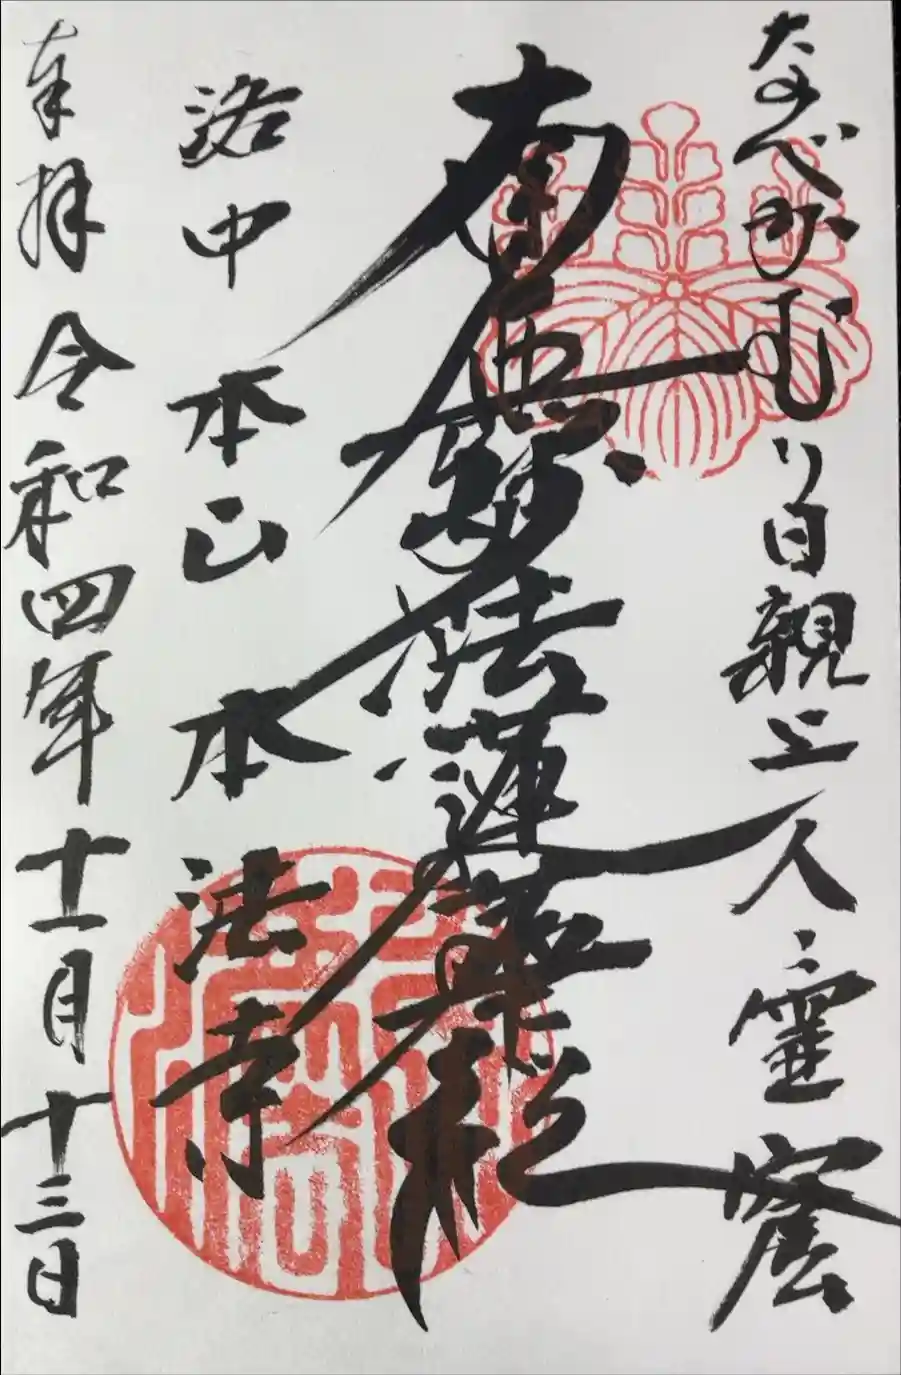 なべかむり日親上人霊窟
南無妙法蓮華経
洛中 本山 本法寺
奉拝 令和四年十一月十三日